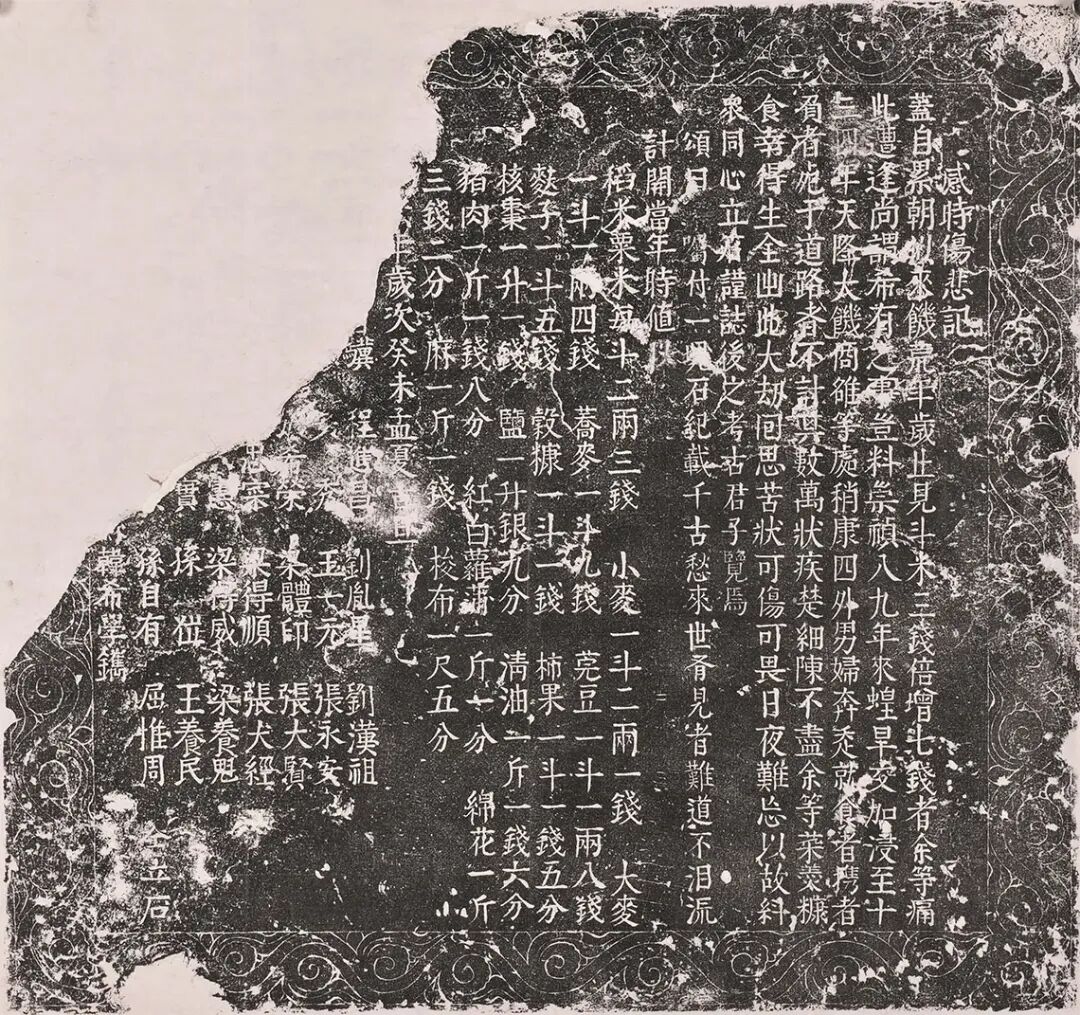 感時傷悲記
蓋自累朝以來饑荒年歲止見斗米三錢倍增七錢者余等痛
此遭逢尚謂希有之事豈料崇禎八九年來蝗旱交加浸至十
三四年天降大饑商雒等處稍康四外男婦奔走就食者攜者
負者死于道路者不計其數萬狀疾楚細陳不盡余等菜羹糠
食幸得生全幽此大劫回思苦狀可傷可畏日夜難忘以故糾
衆同心立石謹誌後之考古君子覽焉
頌曰 囑付一片石紀載千古愁來世齊見者難道不泪流
計開當年時值
稻米粟米每斗二兩三錢 小麥一斗二兩一錢 大麥
一斗一兩四錢 蕎麥一斗九錢 莞豆一斗一兩八錢
麩子一斗五錢 穀糠一斗一錢 柿果一斗一錢五分
核棗一升一錢 鹽一升銀九分 清油一斤一錢六分
猪肉一斤一錢八分 紅白蘿蔔一斤一分 綿花一斤
三錢二分 麻一斤一錢 梭布一尺五分
年歲次癸未孟夏吉旦
程進昌 劉胤星 劉漢祖
王七元 張永安
朱體印 張大賢
梁得順 張大經
惠 梁得威 梁養魁
貫 孫 王養民
孫自有 屈惟周 仝立石
韓布學鐫